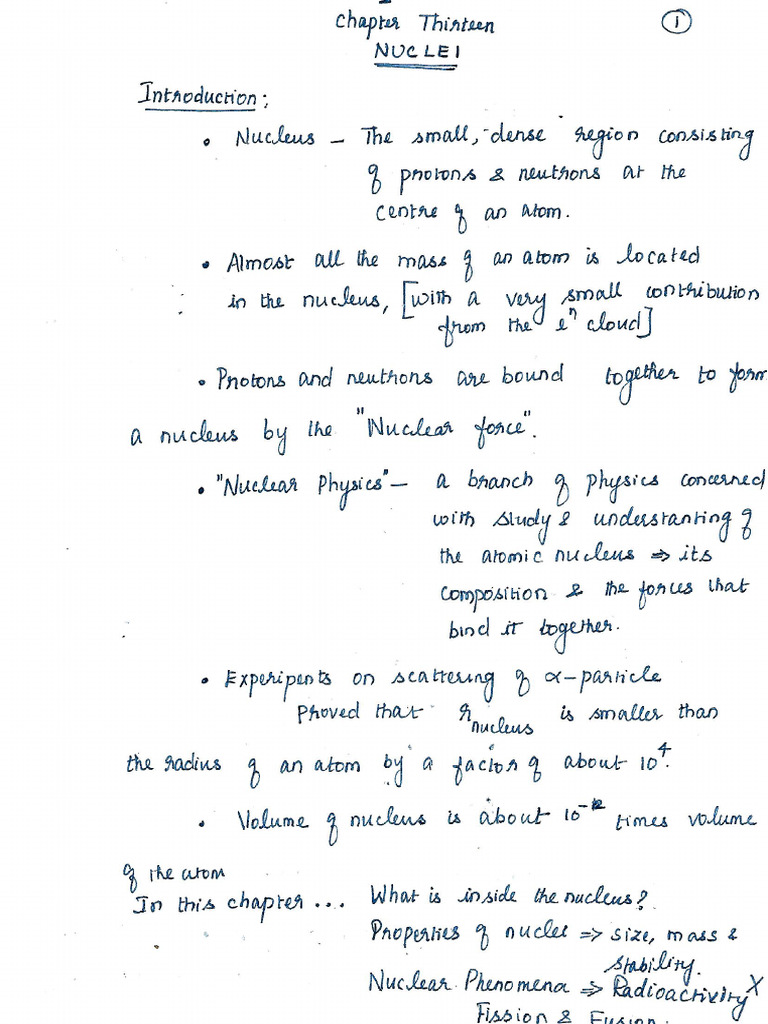 Chapter Thirteen
①
NUCLEI
Introduction:
• Nucleus – The small, dense region consisting
of protons & neutrons at the
centre of an atom.
• Almost all the mass of an atom is located
in the nucleus, [with a very small contribution
from the eⁿ cloud]
• Protons and neutrons are bound together to form
a nucleus by the "Nuclear force".
• "Nuclear Physics" – a branch of physics concerned
with study & understanting of
the atomic nucleus ⇒ its
composition & the forces that
bind it together.
• Experipents on scattering of α-particle
proved that r_nucleus is smaller than
the radius of an atom by a factor of about 10⁴.
• Volume of nucleus is about 10⁻¹² times volume
of the atom
In this chapter ... What is inside the nucleus?
Properties of nuclei ⇒ size, mass &
stability.
Nuclear Phenomena ⇒ Radioactivity X
Fission & Fusion.